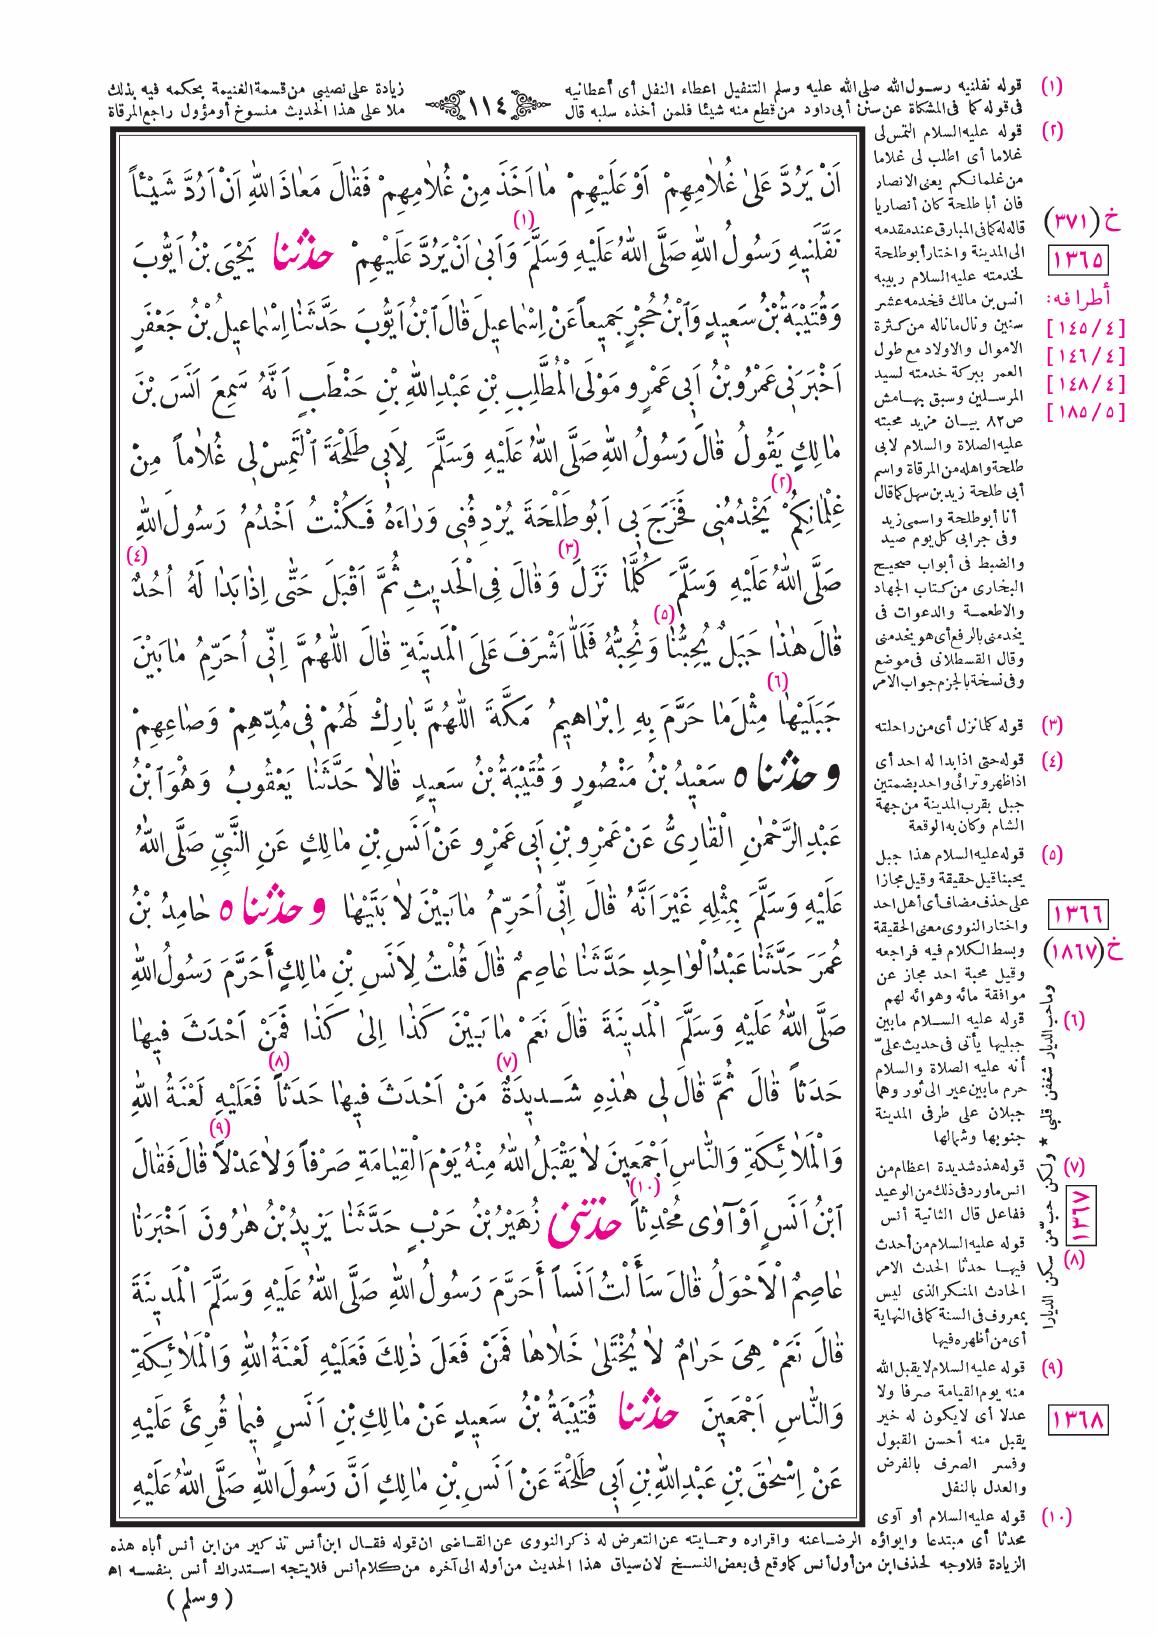 (١) قوله نفلنيه رسول الله صلى الله عليه وسلم التنفيل اعطاء النفل أى أعطانيه
زيادة على نصيبي من قسمة الغنيمة بحكمه فيه بذلك
فى قوله كما فى المشكاة عن سنن أبى داود من قطع منه شيئا فلمن أخذه سلبه قال
ملا على هذا الحديث منسوخ أو مؤول راجع المرقاة
١١٤
اَنْ يَرُدَّ عَلىٰ غُلَامِهِمْ اَوْ عَلَيْهِمْ مَا اَخَذَ مِنْ غُلَامِهِمْ فَقَالَ مَعَاذَ اللهِ اَنْ اَرُدَّ شَيْئاً
نَفَّلَنِيهِ رَسُولُ اللهِ صَلَّى اللهُ عَلَيْهِ وَسَلَّمَ (١) وَاَبىٰ اَنْ يَرُدَّ عَلَيْهِمْ حدثنا يَحْيَى بْنُ اَيُّوبَ
وَقُتَيْبَةُ بْنُ سَعِيدٍ وَابْنُ حُجْرٍ جَمِيعاً عَنْ اِسْمَاعِيلَ قَالَ ابْنُ اَيُّوبَ حَدَّثَنَا اِسْمَاعِيلُ بْنُ جَعْفَرٍ
اَخْبَرَنِى عَمْرُو بْنُ اَبِى عَمْرٍو مَوْلَى الْمُطَّلِبِ بْنِ عَبْدِ اللهِ بْنِ حَنْطَبٍ اَنَّهُ سَمِعَ اَنَسَ بْنَ
مَالِكٍ يَقُولُ قَالَ رَسُولُ اللهِ صَلَّى اللهُ عَلَيْهِ وَسَلَّمَ لِاَبِى طَلْحَةَ الْتَمِسْ لِى غُلَاماً مِنْ
غِلْمَانِكُمْ (٢) يَخْدُمُنِى فَخَرَجَ بِى اَبُو طَلْحَةَ يُرْدِفُنِى وَرَاءَهُ فَكُنْتُ اَخْدُمُ رَسُولَ اللهِ
صَلَّى اللهُ عَلَيْهِ وَسَلَّمَ كُلَّمَا نَزَلَ (٣) وَقَالَ فِى الْحَدِيثِ ثُمَّ اَقْبَلَ حَتّٰى اِذَا بَدَا لَهُ اُحُدٌ (٤)
قَالَ هٰذَا جَبَلٌ يُحِبُّنَا (٥) وَنُحِبُّهُ فَلَمَّا اَشْرَفَ عَلَى الْمَدِينَةِ قَالَ اللّٰهُمَّ اِنِّى اُحَرِّمُ مَا بَيْنَ
جَبَلَيْهَا (٦) مِثْلَ مَا حَرَّمَ بِهِ اِبْرَاهِيمُ مَكَّةَ اللّٰهُمَّ بَارِكْ لَهُمْ فِى مُدِّهِمْ وَصَاعِهِمْ
و حدثناه سَعِيدُ بْنُ مَنْصُورٍ وَقُتَيْبَةُ بْنُ سَعِيدٍ قَالَا حَدَّثَنَا يَعْقُوبُ وَهُوَ ابْنُ
عَبْدِ الرَّحْمٰنِ الْقَارِىُّ عَنْ عَمْرِو بْنِ اَبِى عَمْرٍو عَنْ اَنَسِ بْنِ مَالِكٍ عَنِ النَّبِىِّ صَلَّى اللهُ
عَلَيْهِ وَسَلَّمَ بِمِثْلِهِ غَيْرَ اَنَّهُ قَالَ اِنِّى اُحَرِّمُ مَا بَيْنَ لَابَتَيْهَا و حدثناه حَامِدُ بْنُ
عُمَرَ حَدَّثَنَا عَبْدُ الْوَاحِدِ حَدَّثَنَا عَاصِمٌ قَالَ قُلْتُ لِاَنَسِ بْنِ مَالِكٍ أَحَرَّمَ رَسُولُ اللهِ
صَلَّى اللهُ عَلَيْهِ وَسَلَّمَ الْمَدِينَةَ قَالَ نَعَمْ مَا بَيْنَ كَذَا اِلىٰ كَذَا فَمَنْ اَحْدَثَ فِيهَا
حَدَثاً قَالَ ثُمَّ قَالَ لِى هٰذِهِ شَدِيدَةٌ (٧) مَنْ اَحْدَثَ فِيهَا حَدَثاً (٨) فَعَلَيْهِ لَعْنَةُ اللهِ
وَالْمَلَائِكَةِ وَالنَّاسِ اَجْمَعِينَ لَا يَقْبَلُ اللهُ مِنْهُ يَوْمَ الْقِيَامَةِ صَرْفاً وَلَا عَدْلاً (٩) قَالَ فَقَالَ
ابْنُ اَنَسٍ اَوْ آوٰى مُحْدِثاً (١٠) حدثنى زُهَيْرُ بْنُ حَرْبٍ حَدَّثَنَا يَزِيدُ بْنُ هٰرُونَ اَخْبَرَنَا
عَاصِمٌ الْاَحْوَلُ قَالَ سَأَلْتُ اَنَساً أَحَرَّمَ رَسُولُ اللهِ صَلَّى اللهُ عَلَيْهِ وَسَلَّمَ الْمَدِينَةَ
قَالَ نَعَمْ هِىَ حَرَامٌ لَا يُخْتَلىٰ خَلَاهَا فَمَنْ فَعَلَ ذٰلِكَ فَعَلَيْهِ لَعْنَةُ اللهِ وَالْمَلَائِكَةِ
وَالنَّاسِ اَجْمَعِينَ حدثنا قُتَيْبَةُ بْنُ سَعِيدٍ عَنْ مَالِكِ بْنِ اَنَسٍ فِيمَا قُرِئَ عَلَيْهِ
عَنْ اِسْحٰقَ بْنِ عَبْدِ اللهِ بْنِ اَبِى طَلْحَةَ عَنْ اَنَسِ بْنِ مَالِكٍ اَنَّ رَسُولَ اللهِ صَلَّى اللهُ عَلَيْهِ
(٢) قوله عليه السلام التمس لى
غلاما أى اطلب لى غلاما
من غلمانكم يعنى الانصار
فان أبا طلحة كان أنصاريا
قاله له كما فى المبارق عند مقدمه
الى المدينة واختار أبو طلحة
لخدمته عليه السلام ربيبه
انس بن مالك فخدمه عشر
سنين ونال ما ناله من كثرة
الاموال والاولاد مع طول
العمر ببركة خدمته لسيد
المرسلين وسبق بهامش
ص ٨٢ بيان مزيد محبته
عليه الصلاة والسلام لابى
طلحة واهله من المرقاة واسم
أبى طلحة زيد بن سهل كما قال
أنا أبو طلحة واسمى زيد
وفى جرابى كل يوم صيد
والضبط فى أبواب صحيح
البخارى من كتاب الجهاد
والاطعمة والدعوات فى
يخدمنى بالرفع أى هو يخدمنى
وقال القسطلانى فى موضع
وفى نسخة بالجزم جواب الامر
(٣) قوله كلما نزل أى من راحلته
(٤) قوله حتى اذا بدا له احد أى
اذا ظهر وتراءى واحد بضمتين
جبل بقرب المدينة من جهة
الشام وكان به الوقعة
(٥) قوله عليه السلام هذا جبل
يحبنا قيل حقيقة وقيل مجازا
على حذف مضاف أى أهل احد
واختار النووى معنى الحقيقة
وبسط الكلام فيه فراجعه
وقيل محبة احد مجاز عن
موافقة مائه وهوائه لهم
(٦) قوله عليه السلام ما بين
جبليها يأتى فى حديث علىّ
أنه عليه الصلاة والسلام
حرم ما بين عير الى ثور وهما
جبلان على طرفى المدينة
جنوبها وشمالها
(٧) قوله هذه شديدة اعظام من
انس ما ورد فى ذلك من الوعيد
ففاعل قال الثانية أنس
(٨) قوله عليه السلام من أحدث
فيها حدثا الحدث الامر
الحادث المنكر الذى ليس
بمعروف فى السنة كما فى النهاية
أى من أظهره فيها
(٩) قوله عليه السلام لا يقبل الله
منه يوم القيامة صرفا ولا
عدلا أى لا يكون له خير
يقبل منه أحسن القبول
وفسر الصرف بالفرض
والعدل بالنفل
(١٠) قوله عليه السلام أو آوى
محدثا أى مبتدعا وايواؤه الرضا عنه واقراره وحمايته عن التعرض له ذكر النووى عن القاضى ان قوله فقال ابن أنس تذكير من ابن أنس أباه هذه
الزيادة فلا وجه لحذف ابن من أول أنس كما وقع فى بعض النسخ لان سياق هذا الحديث من أوله الى آخره من كلام أنس فلا يتجه استدراك أنس بنفسه اه
( وسلم )
خ (٣٧١)
١٣٦٥
أطرافه:
[١٤٥/٤]
[١٤٦/٤]
[١٤٨/٤]
[١٨٥/٥]
١٣٦٦
خ (١٨٦٧)
وما حب الديار شغفن قلبى ★ ولكن حب من سكن الديارا
١٣٦٧
١٣٦٨